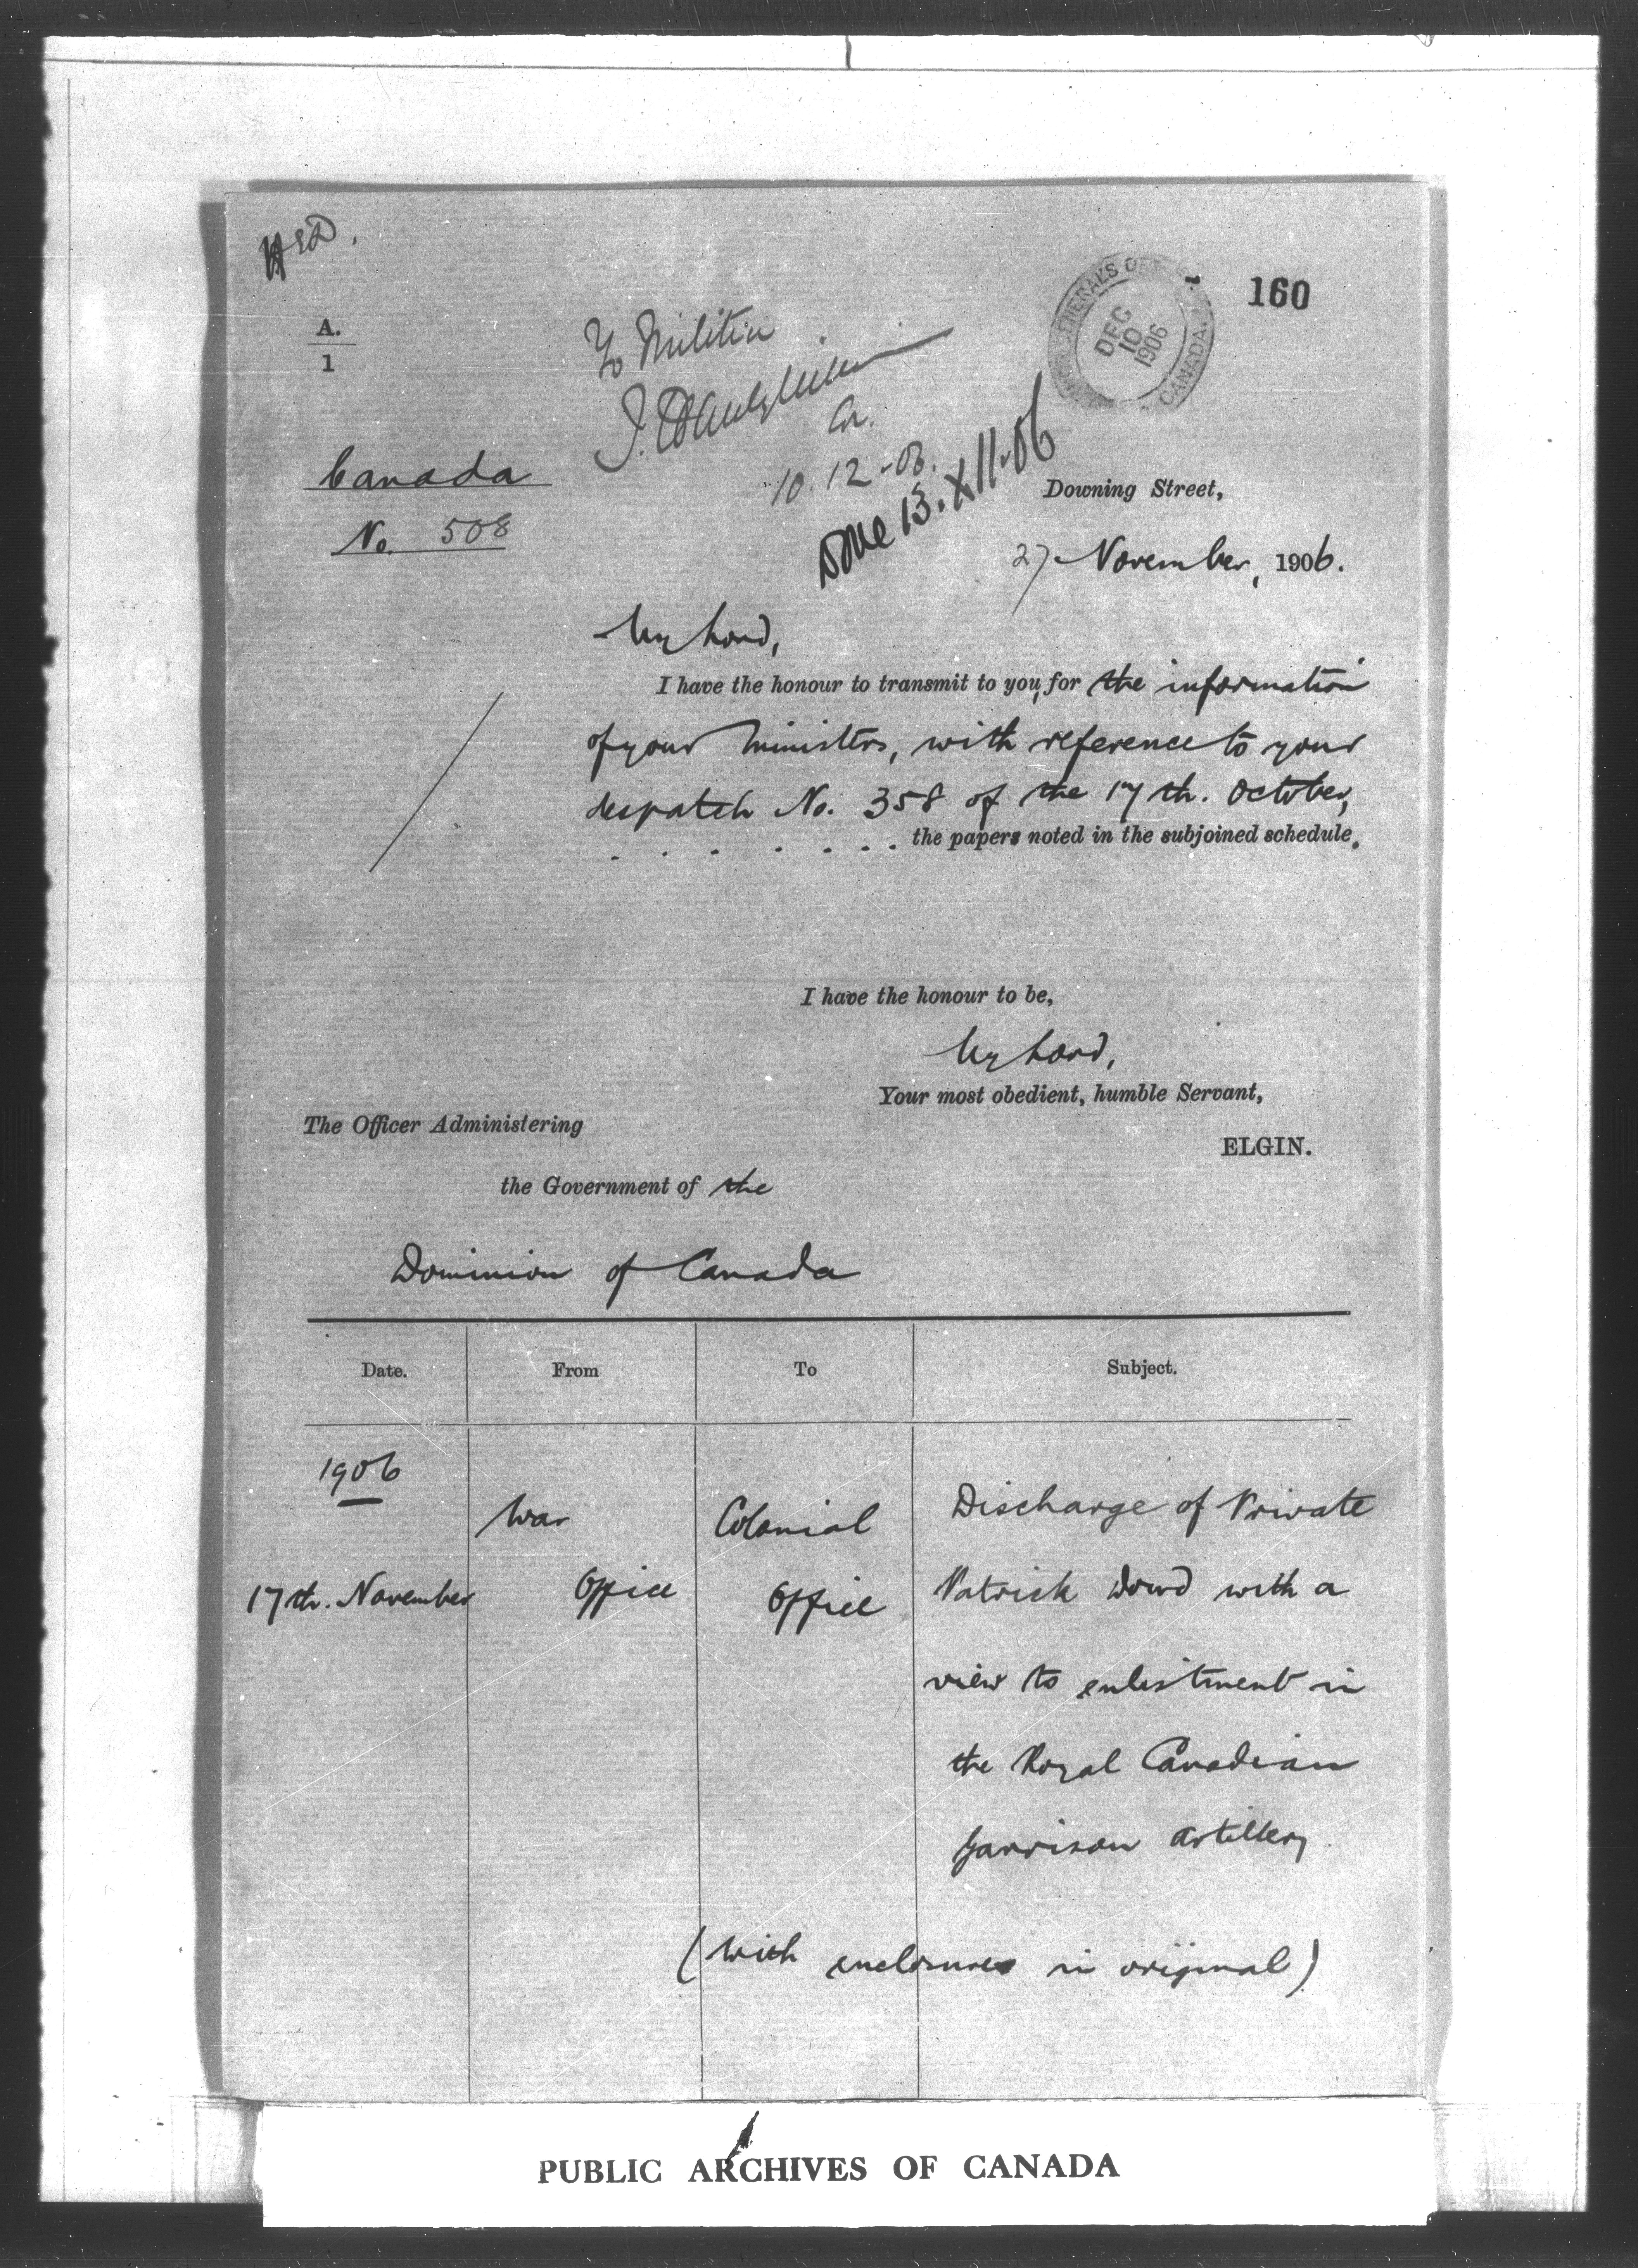 160
A.
1
To Militia
GENERAL'S
DEC
10
1906
CANADA.
10.12.-06.
Done 13.XII.06
Canada
No. 508
Downing Street,
27 November, 1906.
My Lord,
I have the honour to transmit to you, for the information
of your Ministers, with reference to your
despatch No. 358 of the 17th. October,
. . . . . . . the papers noted in the subjoined schedule.
I have the honour to be,
My Lord,
Your most obedient, humble Servant,
ELGIN.
The Officer Administering
the Government of the
Dominion of Canada
Date. From To Subject.
1906
War Colonial Discharge of Private
17th. November Office Office Patrick Dowd with a
view to enlistment in
the Royal Canadian
Garrison Artillery.
(With enclosures in original)
PUBLIC ARCHIVES OF CANADA